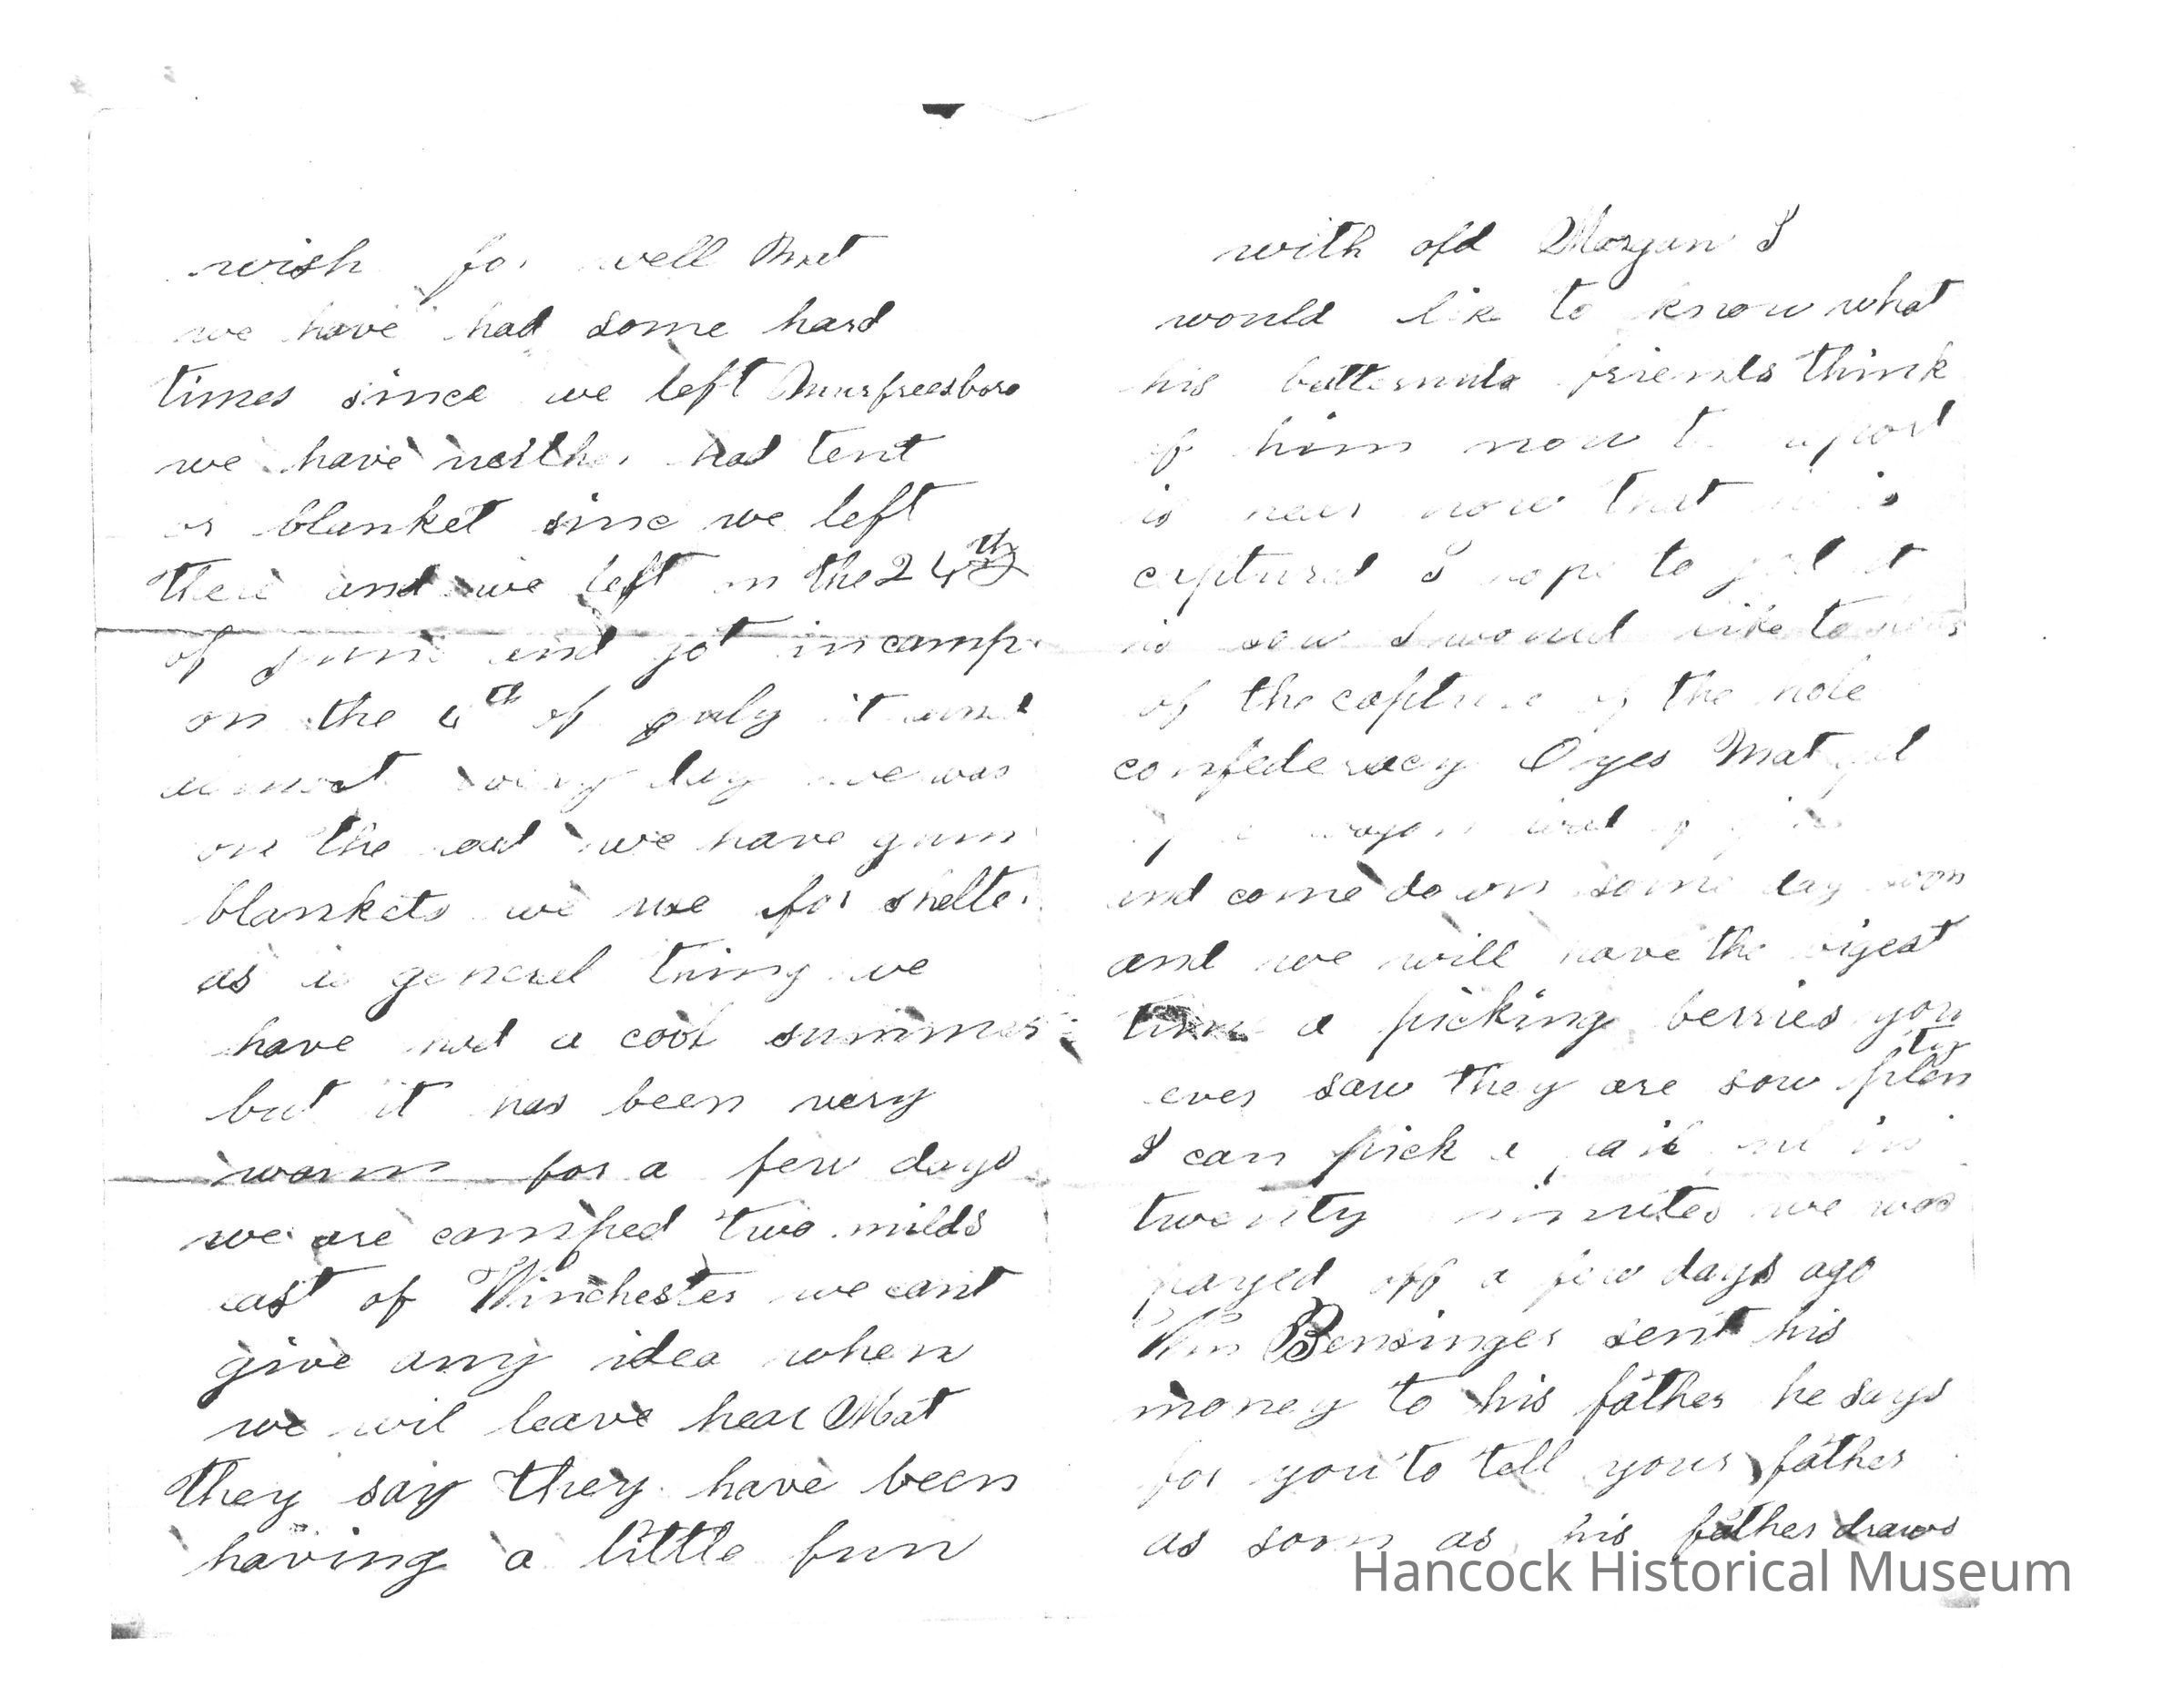 wish for well Mat
we have had some hard
times since we left Murfreesboro
we have neither had tent
or blanket sinc we left
there and we left on the 24th
of june and got in camp
on the 4th of july it
almost every day we was
on the road we have gum
blankets we use for shelter
as a general thing we
have had a cool summer
but it has been very
warm for a few days
we are camped two milds
east of Winchester we cant
give any idea when
we wil leave hear Mat
they say they have been
having a little fun
with old Morgan I
would lik to know what
his butternuts friends think
of him now
is hear now that
captured I hope to god it
is sow I would like to
of the capture of the hole
confederacy O yes Mat

and come down some day soon
and we will have the bigest
time a picking berries you
ever saw they are sow plenty
I can pick a pail in
twenty minutes we was
payed off a few days ago
Wm Bensinger sent his
money to his father he says
for you to tell your father
as soon as his father draws
Hancock Historical Museum